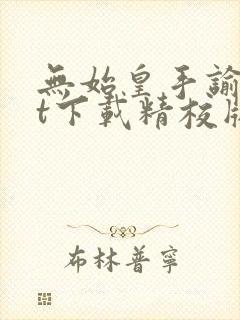 無始皇手諭
t下載精校版
布林普寧